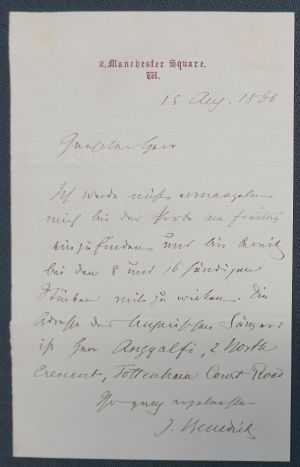 2, Manchester Square.
W.
15 Aug. 1886
Geehrter Herr
Ich werde nicht ermangeln
mich bei der Probe am Freitag
einzufinden und bin bereit
bei den 8 und 16 händigen
Stücken mitzuwirken. Die
Adresse des Ungarischen Sängers
ist Herr Angyalfi, 2 North
Crescent, Tottenham Court Road
Ihr ganz ergebenster
J. Benedict